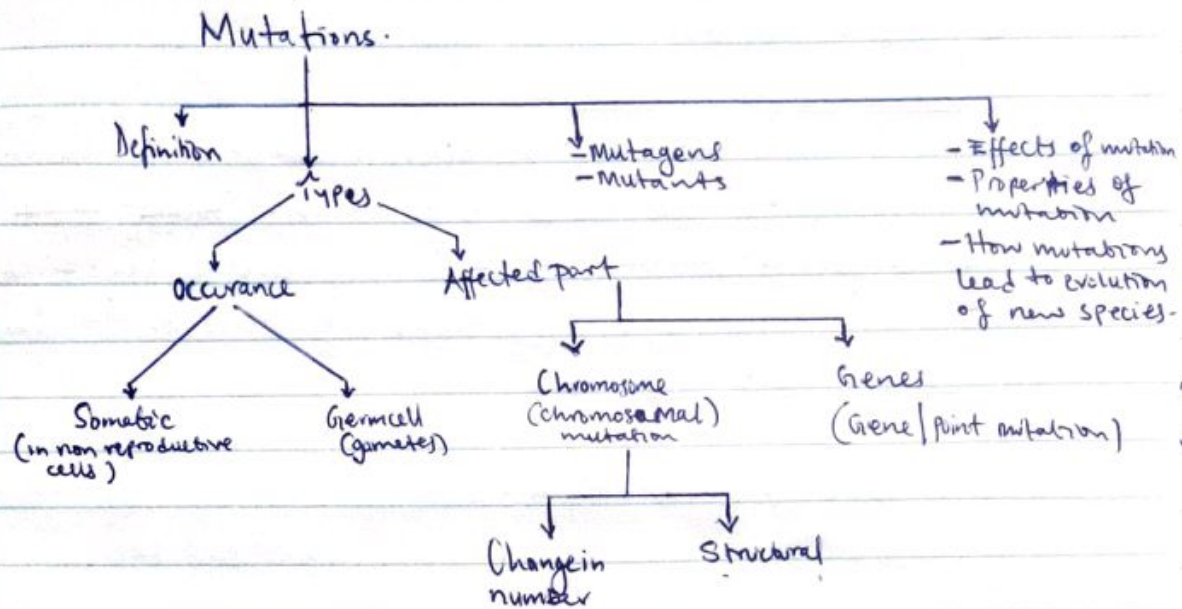 Mutations.
Definition
Types
-Mutagens
-Mutants
- Effects of mutation
- Properties of
mutation
- How mutations
lead to evolution
of new species.
Occurance
Affected part
Somatic
(in non reproductive
cells)
Germcell
(gametes)
Chromosome
(chromosomal)
mutation
Genes
(Gene/point mutation)
Change in
number
Structural